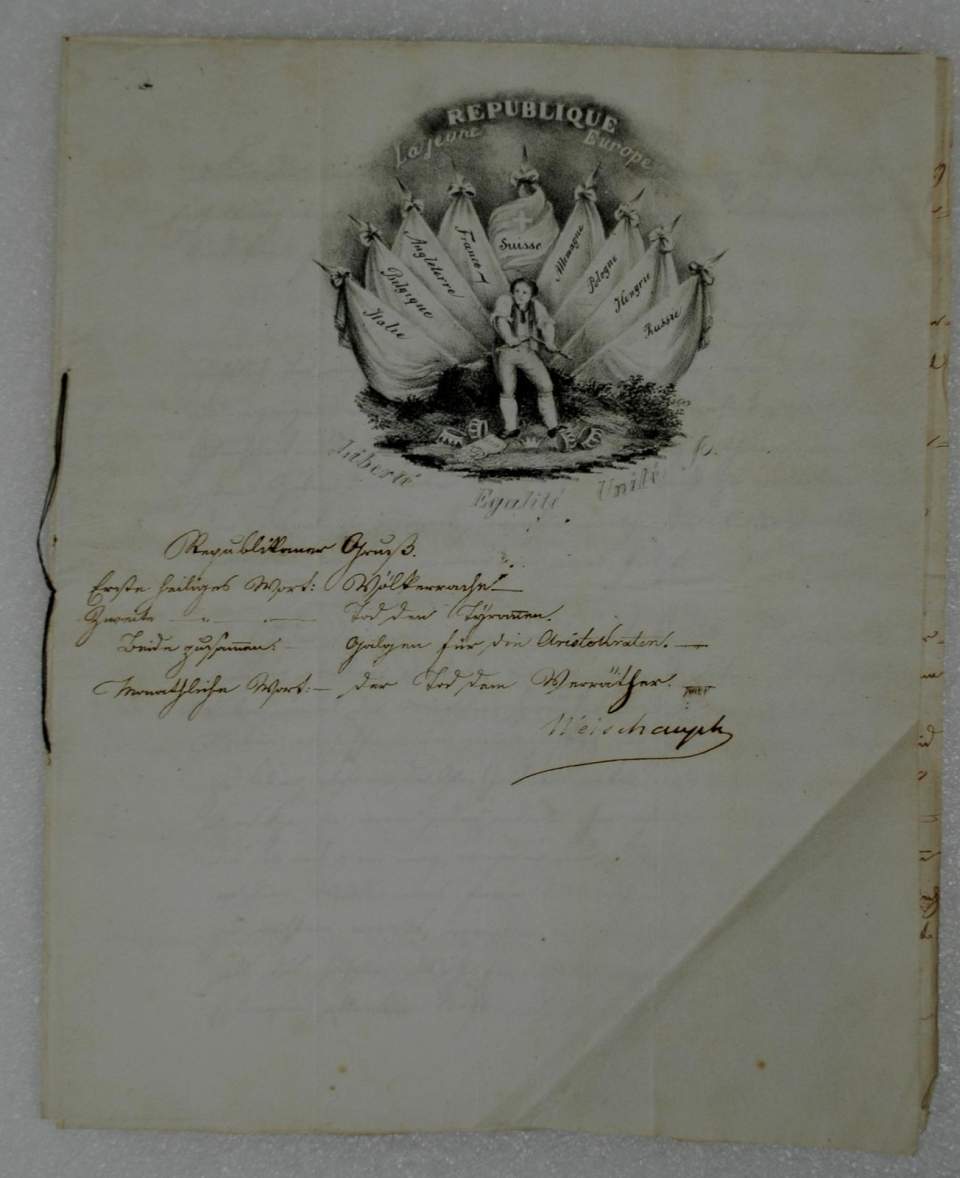 REPUBLIQUE
La jeune Europe
Suisse
France
Allemagne
Angleterre
Pologne
Belgique
Hongrie
Italie
Russie
Liberté Egalité Unité
Republikaner Gruß.
Erste heiliges Wort: Völkerrache! —
Zweite — " — Tod den Tÿrannen.
Beide zusammen: — Galgen für die Aristokraten. —
Monathliche Wort: — der Tod dem Verräther.
Weischaupt